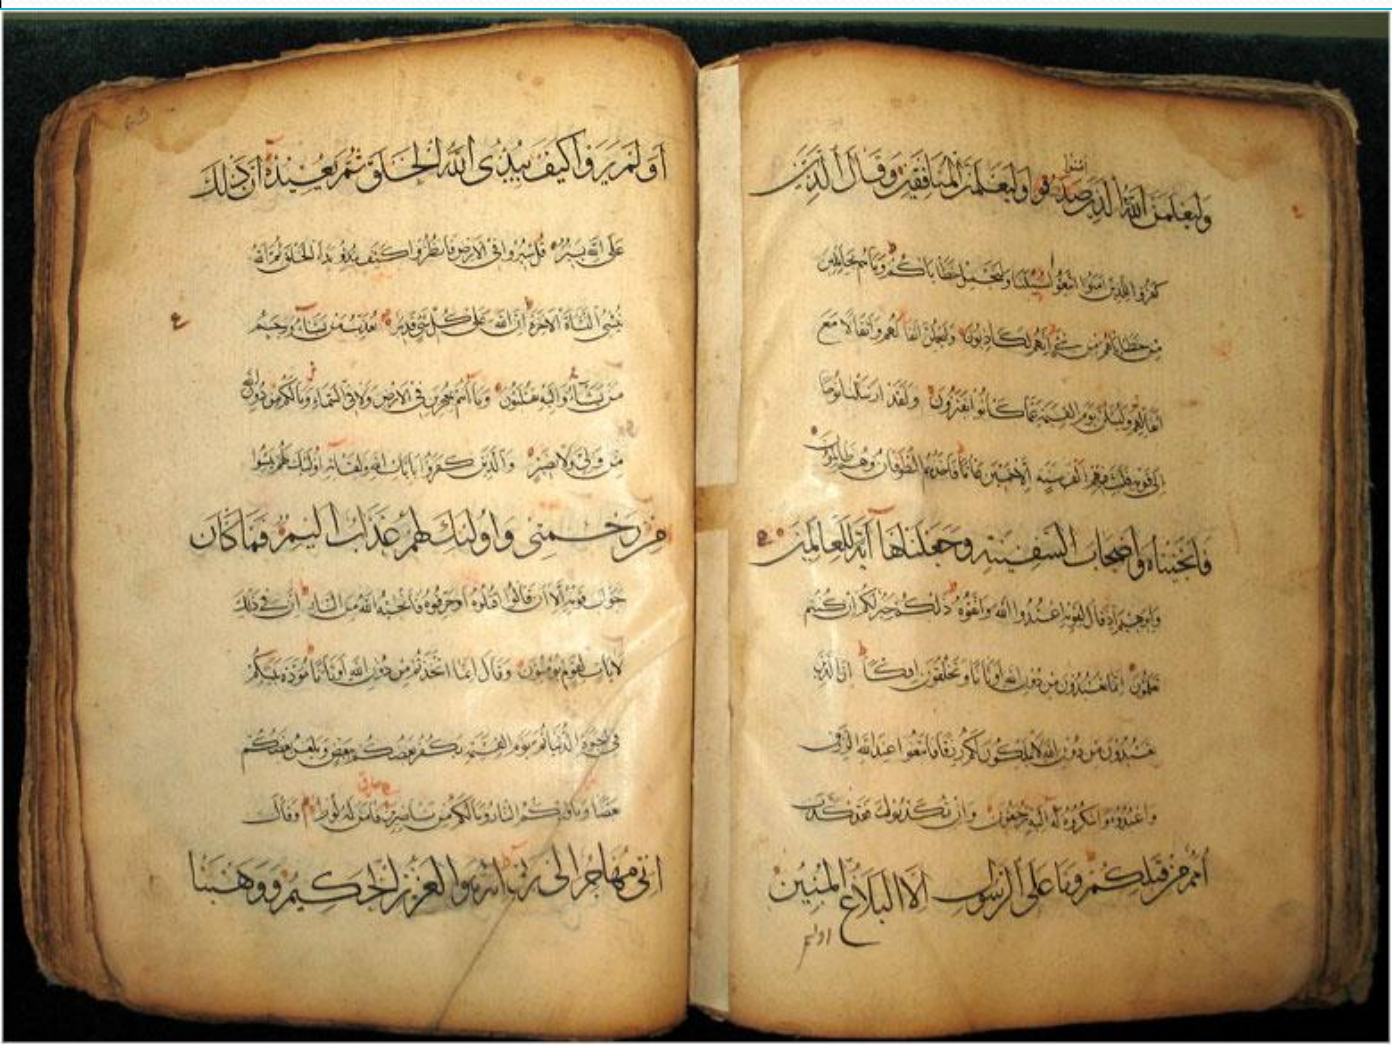 امنوا
وليعلمن الله الذين صدقوا وليعلمن المنافقين وقال الذين
كفروا للذين امنوا اتبعوا سبيلنا ولنحمل خطاياكم وما هم بحاملين
من خطاياهم من شئ انهم لكاذبون وليحملن اثقالهم واثقالا مع
اثقالهم وليسئلن يوم القيمة عما كانوا يفترون ولقد ارسلنا نوحا
الى قومه فلبث فيهم الف سنة الا خمسين عاما فاخذهم الطوفان وهم ظالمون
فانجيناه واصحاب السفينة وجعلناها آية للعالمين
وابرهيم اذ قال لقومه اعبدوا الله واتقوه ذلكم خير لكم ان كنتم
تعلمون انما تعبدون من دون الله اوثانا وتخلقون افكا ان الذين
تعبدون من دون الله لا يملكون لكم رزقا فابتغوا عند الله الرزق
واعبدوه واشكروا له اليه ترجعون وان تكذبوا فقد كذب
امم من قبلكم وما على الرسول الا البلاغ المبين
اولم
اولم يروا كيف يبدئ الله الخلق ثم يعيده ان ذلك
على الله يسير قل سيروا في الارض فانظروا كيف بدا الخلق ثم الله
ينشئ النشاة الاخرة ان الله على كل شئ قدير يعذب من يشاء ويرحم
من يشاء واليه تقلبون وما انتم بمعجزين في الارض ولا في السماء وما لكم من دون الله
من ولي ولا نصير والذين كفروا بايات الله ولقائه اولئك يئسوا
من رحمتي واولئك لهم عذاب اليم فما كان
جواب قومه الا ان قالوا اقتلوه او حرقوه فانجيه الله من النار ان في ذلك
لايات لقوم يؤمنون وقال انما اتخذتم من دون الله اوثانا مودة بينكم
في الحيوة الدنيا ثم يوم القيمة يكفر بعضكم ببعض ويلعن بعضكم
بعضا وماويكم النار وما لكم من ناصرين فامن له لوط وقال
اني مهاجر الى ربي انه هو العزيز الحكيم ووهبنا